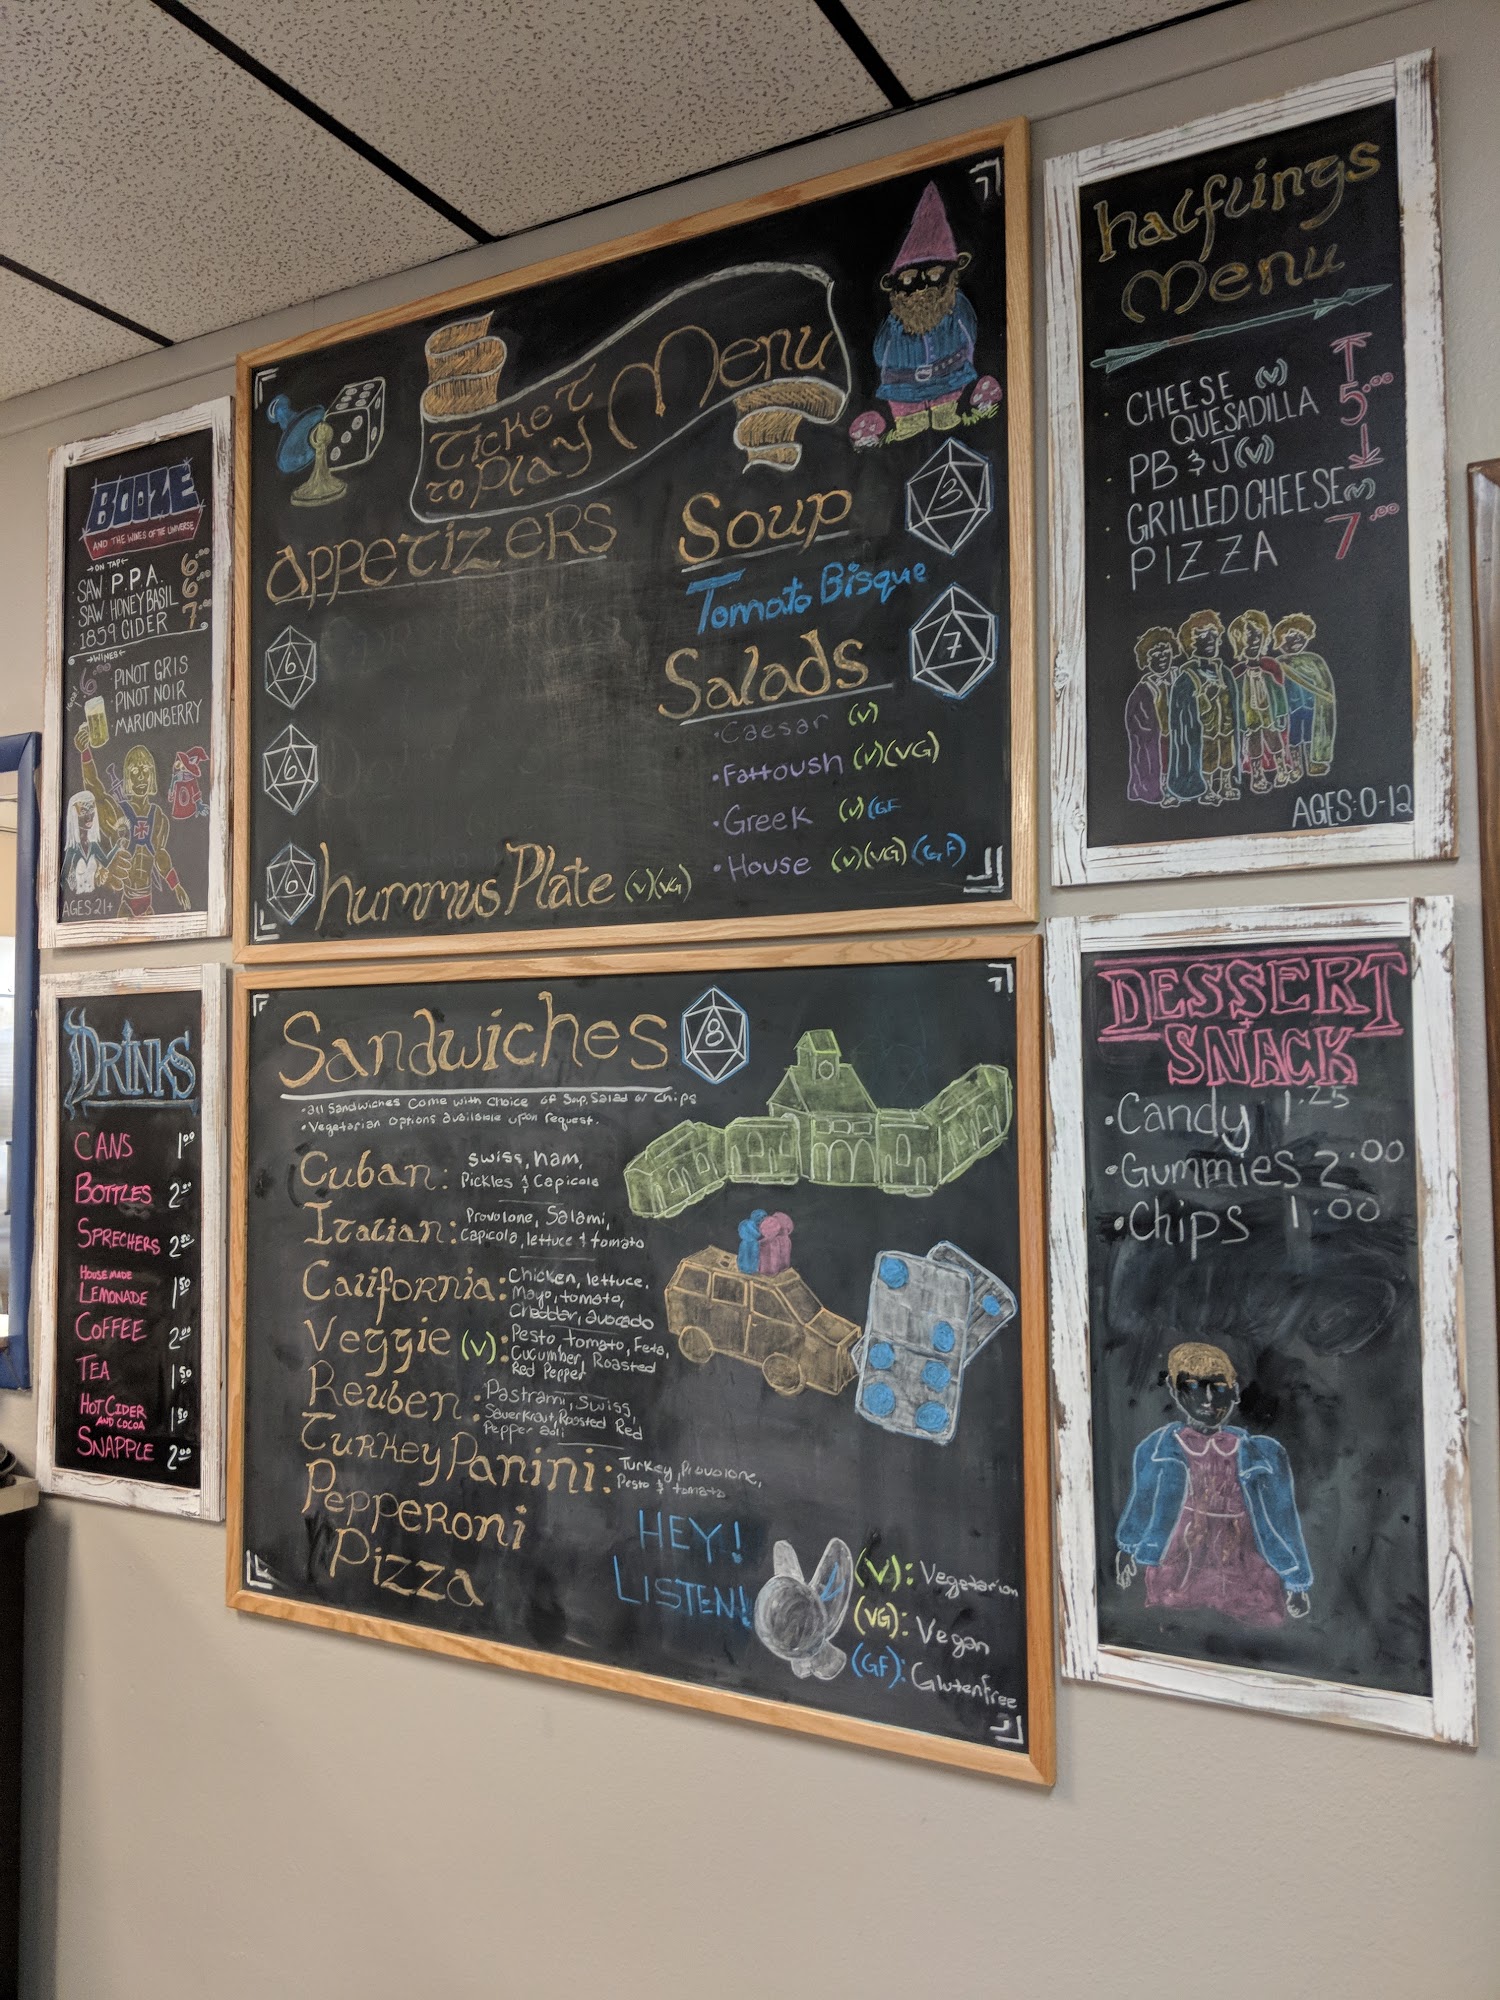 BOOZE
AND THE WINES OF THE UNIVERSE
ON TAP
SAW P.P.A. 6.00
SAW HONEY BASIL 6.00
1859 CIDER 7.00
WINES
6.00
PINOT GRIS
PINOT NOIR
MARIONBERRY
AGES 21+
DRINKS
CANS 1.00
BOTTLES 2.00
SPRECHERS 2.50
HOUSE MADE
LEMONADE 1.50
COFFEE 2.00
TEA 1.50
HOT CIDER 1.50
AND COCOA
SNAPPLE 2.00
Ticket
to Play
Menu
Appetizers
6
6
6 Hummus Plate (V)(VG)
Soup 3
Tomato Bisque
Salads 7
• Caesar (V)
• Fattoush (V)(VG)
• Greek (V)(GF
• House (V)(VG)(GF)
Sandwiches 8
• All Sandwiches Come with Choice of Soup, Salad or Chips
• Vegetarian options available upon request.
Cuban: Swiss, Ham,
Pickles & Capicola
Italian: Provolone, Salami,
Capicola, lettuce & tomato
California: Chicken, lettuce,
Mayo, tomato,
Cheddar, avocado
Veggie (V): Pesto, tomato, Feta,
Cucumber, Roasted
Red Pepper
Reuben: Pastrami, Swiss,
Sauerkraut, Roasted Red
Pepper aoli
Turkey Panini: Turkey, Provolone,
Pesto & tomato
Pepperoni
Pizza
HEY!
LISTEN!
(V): Vegetarian
(VG): Vegan
(GF): Glutenfree
Halflings
Menu
• CHEESE (V)
QUESADILLA 5.00
• PB & J (V)
• GRILLED CHEESE (V)
• PIZZA 7.00
AGES: 0-12
DESSERT
+
SNACK
• Candy 1.25
• Gummies 2.00
• Chips 1.00